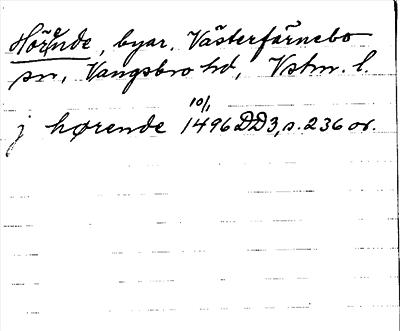 Hörände, byar. Västerfärnebo
sn, Vangsbro hd, Vstm. l.
10/1
j hørende 1496 DD3, s. 236 or.